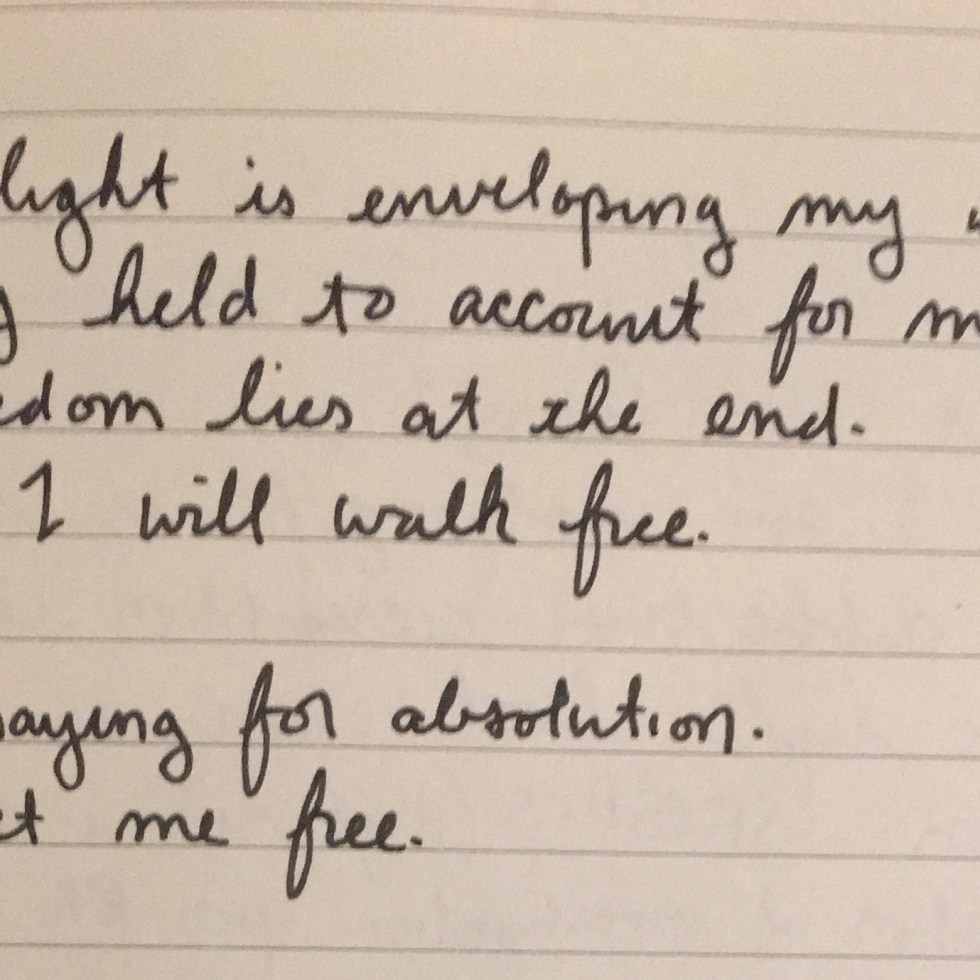 light is enveloping my
held to account for
edom lies at the end.
I will walk free.
aying for absolution.
et me free.